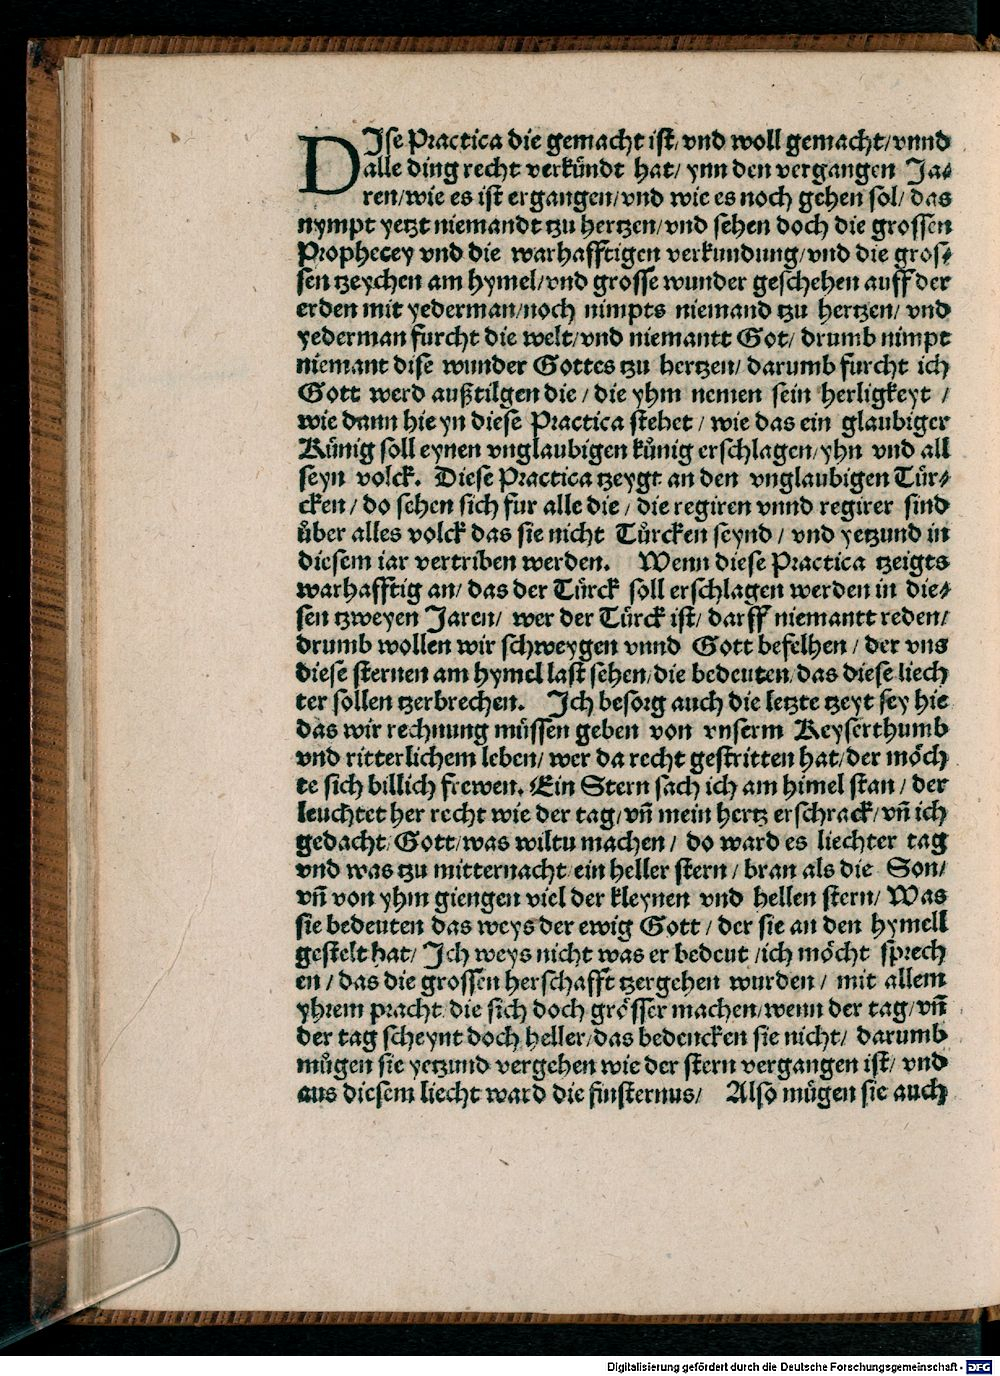 DJse Practica die gemacht ist/ vnd woll gemacht/ vnnd
alle ding recht verkündt hat/ ynn den vergangen Ja⸗
ren/ wie es ist ergangen/ vnd wie es noch gehen sol/ das
nympt yetzt niemandt tzu hertzen/ vnd sehen doch die grossen
Prophecey vnd die warhafftigen verkundung/ vnd die gros⸗
sen tzeychen am hymel/ vnd grosse wunder geschehen auff der
erden mit yederman/ noch nimpts niemand tzu hertzen/ vnd
yederman furcht die welt/ vnd niemantt Got/ drumb nimpt
niemant dise wunder Gottes tzu hertzen/ darumb furcht ich
Gott werd außtilgen die / die yhm nemen sein herligkeyt /
wie dann hie yn diese Practica stehet / wie das ein glaubiger
Künig soll eynen vnglaubigen kůnig erschlagen/ yhn vnd all
seyn volck. Diese Practica tzeygt an den vnglaubigen Tür⸗
cken / do sehen sich fur alle die / die regiren vnnd regirer sind
ůber alles volck das sie nicht Tůrcken seynd / vnd yetzund in
diesem iar vertriben werden. Wenn diese Practica tzeigts
warhafftig an/ das der Türck soll erschlagen werden in die⸗
sen tzweyen Jaren/ wer der Türck ist/ darff niemantt reden/
drumb wollen wir schweygen vnnd Gott befelhen / der vns
diese sternen am hymel last sehen/ die bedeuten/ das diese liech
ter sollen tzerbrechen. Jch besorg auch die letzte tzeyt sey hie
das wir rechnung müssen geben von vnserm Keyserthumb
vnd ritterlichem leben/ wer da recht gestritten hat/ der möch
te sich billich frewen. Ein Stern sach ich am himel stan / der
leuchtet her recht wie der tag/ vn̄ mein hertz erschrack/ vn̄ ich
gedacht/ Gott/ was wiltu machen / do ward es liechter tag
vnd was tzu mitternacht/ ein heller stern / bran als die Son/
vn̄ von yhm giengen viel der kleynen vnd hellen stern/ Was
sie bedeuten das weys der ewig Gott / der sie an den hymell
gestelt hat/ Jch weys nicht was er bedeut / ich möcht sprech
en / das die grossen herschafft tzergehen wurden / mit allem
yhrem pracht/ die sich doch grösser machen/ wenn der tag/ vn̄
der tag scheynt doch heller/ das bedencken sie nicht/ darumb
můgen sie yetzund vergehen wie der stern vergangen ist/ vnd
aus diesem liecht ward die finsternus/ Also mügen sie auch
Digitalisierung gefördert durch die Deutsche Forschungsgemeinschaft - DFG